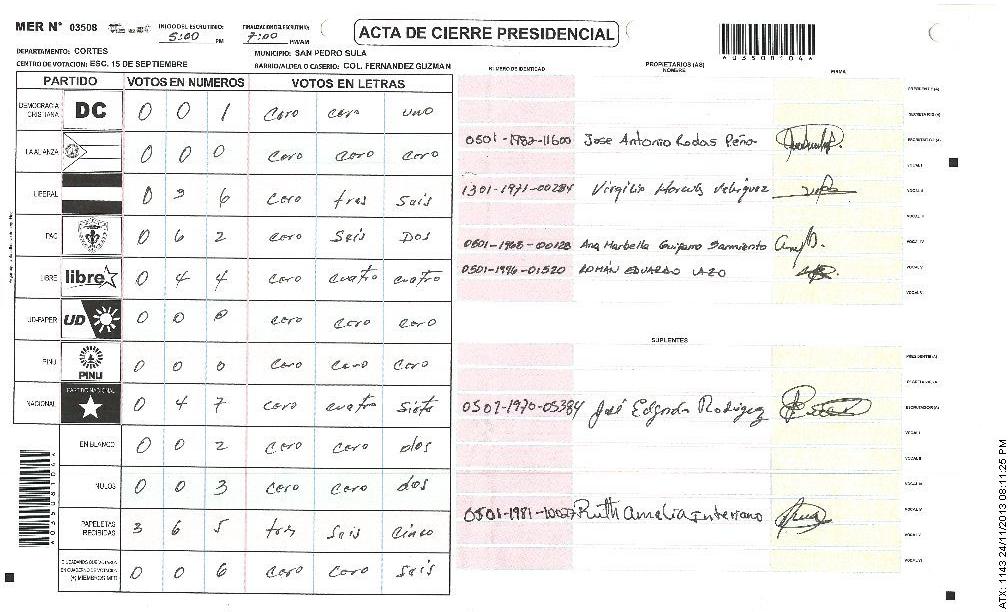 MER N° 03508
INICIO DEL ESCRUTINIO: 5:00 PM
FINALIZACION DEL ESCRUTINIO: 7:00 PM/AM
ACTA DE CIERRE PRESIDENCIAL
*03508104*
DEPARTAMENTO: CORTES
MUNICIPIO: SAN PEDRO SULA
CENTRO DE VOTACION: ESC. 15 DE SEPTIEMBRE
BARRIO/ALDEA O CASERIO: COL. FERNANDEZ GUZMAN
PARTIDO VOTOS EN NUMEROS VOTOS EN LETRAS
DEMOCRACIA CRISTIANA DC 0 0 1 cero cero uno
LA ALIANZA 0 0 0 cero cero cero
LIBERAL 0 3 6 cero tres seis
PAC 0 6 2 cero Seis Dos
LIBRE libre 0 4 4 cero cuatro cuatro
UD-FAPER UD 0 0 0 cero cero cero
PINU PINU 0 0 0 cero cero cero
NACIONAL PARTIDO NACIONAL 0 4 7 cero cuatro siete
EN BLANCO 0 0 2 cero cero dos
NULOS 0 0 3 cero cero dos
PAPELETAS RECIBIDAS 3 6 5 tres seis cinco
0 0 6 cero cero seis
(+) MIEMBROS MER
NUMERO DE IDENTIDAD
PROPIETARIOS (AS)
NOMBRE
FIRMA
PRESIDENTE (A)
SECRETARIO (A)
0501-1982-11600 Jose Antonio Rodas Peña ESCRUTADOR (A)
VOCAL I
1301-1971-00284 Virgilio VOCAL II
VOCAL III
0501-1968-00128 Ana Marbella Sarmiento VOCAL IV
0501-1996-01520 ROMÁN EDUARDO LAZO VOCAL V
SUPLENTES
PRESIDENTE (A)
SECRETARIO (A)
0507-1970-05384 José Edgardo Rodriguez ESCRUTADOR (A)
VOCAL I
VOCAL II
VOCAL III
0501-1981-10027 Ruth Amelia Interiano VOCAL IV
VOCAL V
ATX: 1143 24/11/2013 08:11:25 PM
*03508104*